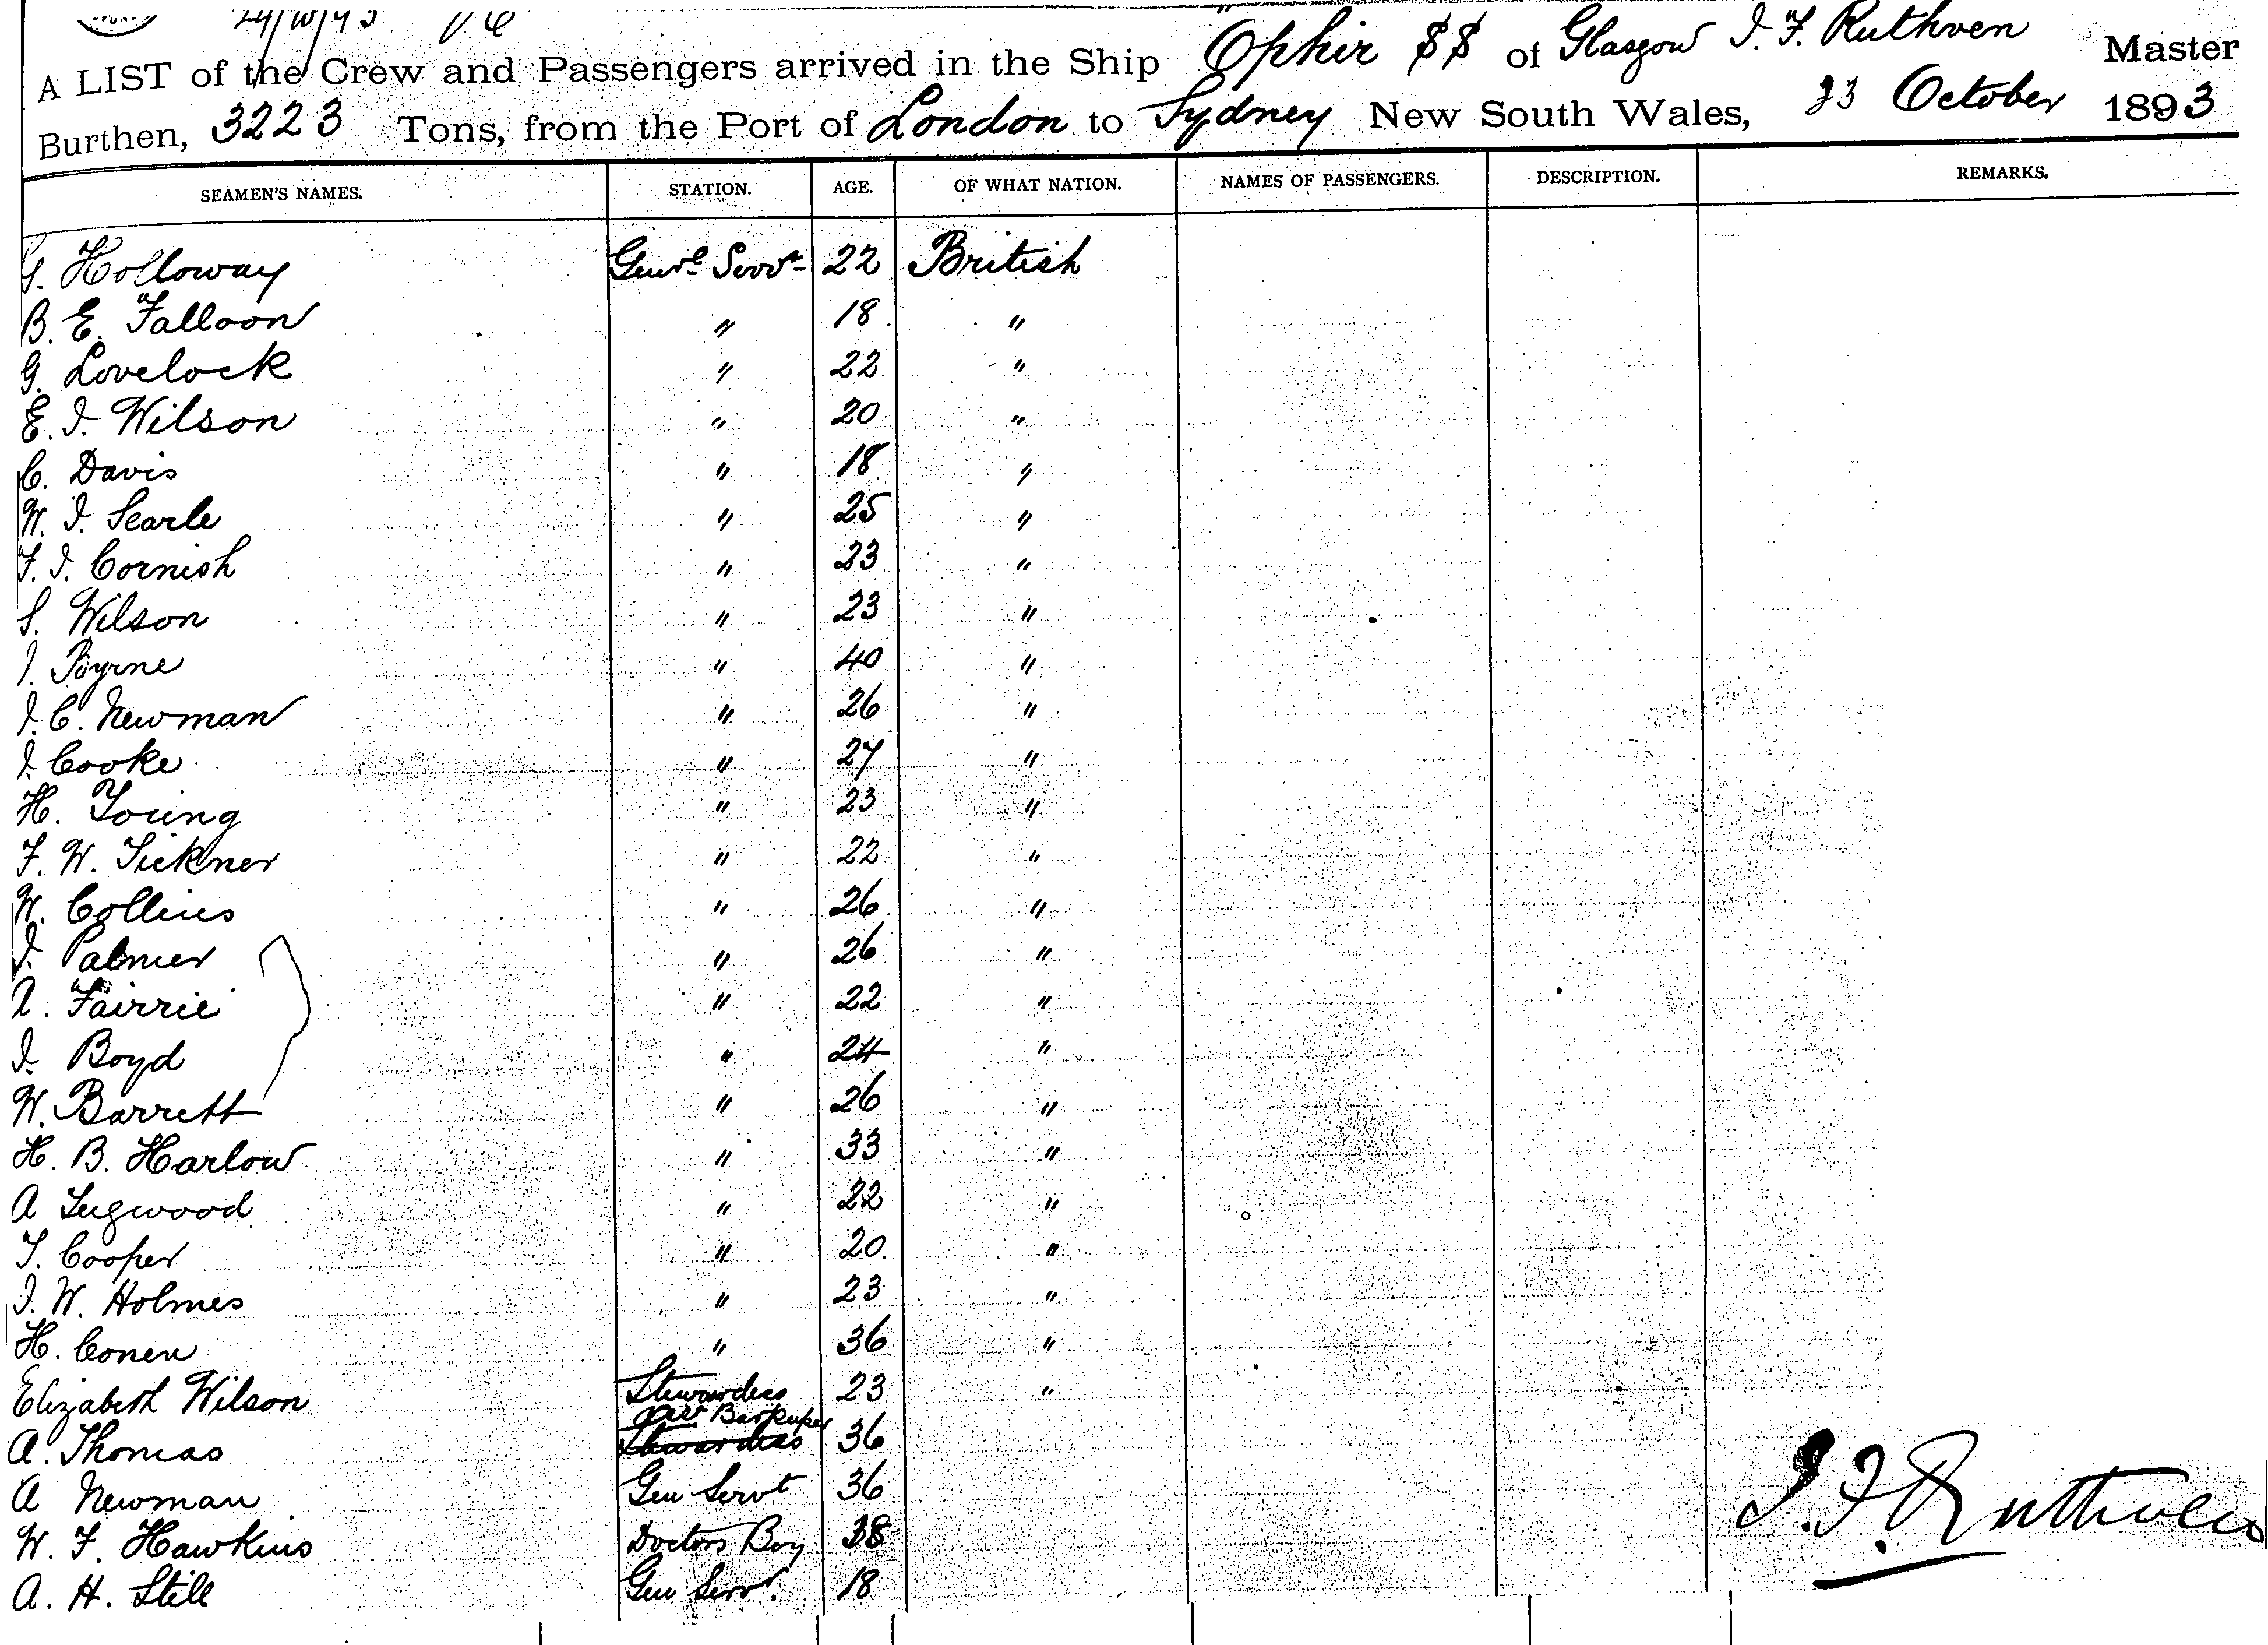 24/10/93
A LIST of the Crew and Passengers arrived in the Ship "Ophir SS of Glasgow J. F. Ruthven Master
Burthen, 3223 Tons, from the Port of London to Sydney New South Wales, 23 October 1893
SEAMEN'S NAMES. STATION. AGE. OF WHAT NATION. NAMES OF PASSENGERS. DESCRIPTION. REMARKS.
G. Holloway Genrl Servt 22 British
B. E. Falloon " 18 "
G. Lovelock " 22 "
E. J. Wilson " 20 "
C. Davis " 18 "
W. J. Searle " 25 "
F. J. Cornish " 23 "
S. Wilson " 23 "
J. Byrne " 40 "
J. C. Newman " 26 "
J. Cooke " 27 "
H. Young " 23 "
F. W. Tickner " 22 "
W. Collins " 26 "
J. Palmer " 26 "
A. Fairrie " 22 "
J. Boyd " 24 "
W. Barrett " 26 "
H. B. Harlow " 33 "
A Lugwood " 22 "
T. Cooper " 20 "
J. W. Holmes " 23 "
H. Conen " 36 "
Elizabeth Wilson Stewardess 23 "
Barkeeper
A. Thomas Stewardess 36
A Newman Gen Servt 36
W. F. Hawkins Doctors Boy 38
A. H. Still Gen Servt. 18
J. F. Ruthven